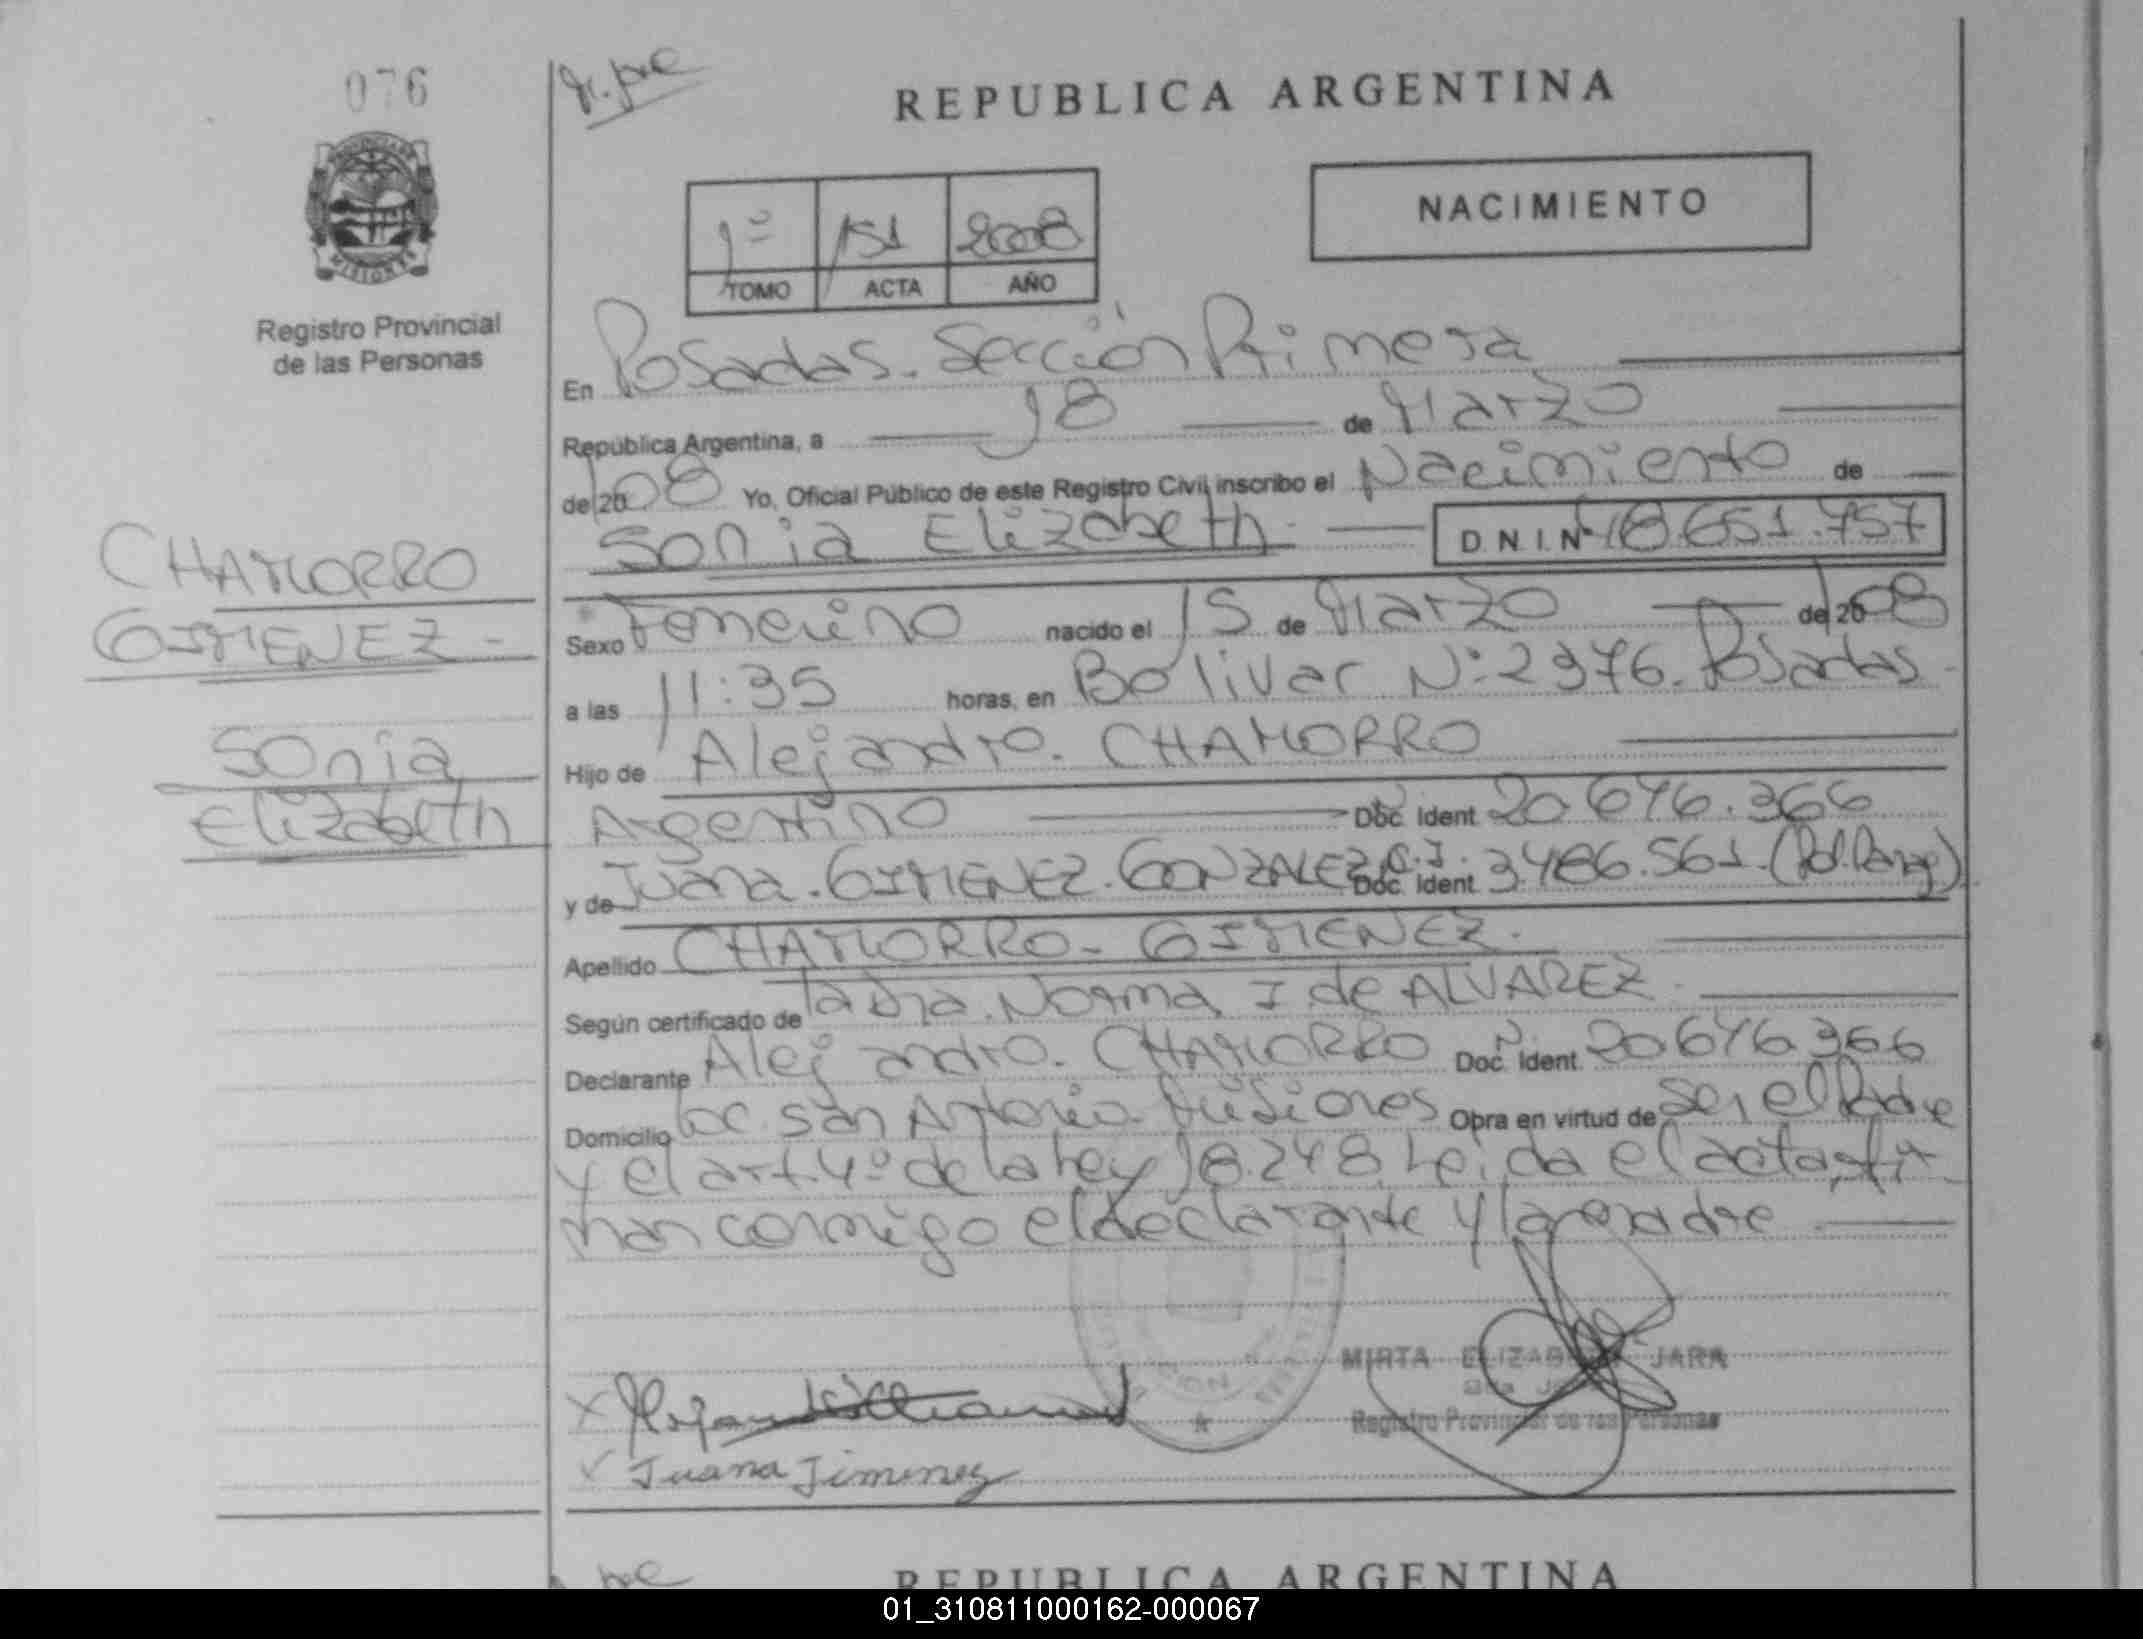 076
REPUBLICA ARGENTINA
PROVINCIA DE
MISIONES
Registro Provincial
de las Personas
1º 151 2008
TOMO ACTA AÑO
NACIMIENTO
En Posadas. Sección Primera
República Argentina, a 18 de Marzo
de 2008 Yo, Oficial Público de este Registro Civil inscribo el Nacimiento de
Sonia Elizabeth D.N.I. Nº 48.651.757
CHAMORRO
GIMENEZ -
Sonia
Elizabeth
Sexo Femenino nacido el 15 de Marzo de 2008
a las 11:35 horas, en Bolivar Nº 2376. Posadas
Hijo de Alejandro. CHAMORRO
Argentino Doc. Ident. 20.676.366
y de Juana. GIMENEZ. GONZALEZ C.I. Doc. Ident. 3.486.561
Apellido CHAMORRO - GIMENEZ.
Según certificado de la Dra. Norma I de ALVAREZ
Declarante Alejandro. CHAMORRO Doc. Ident. 20.676.366
Domicilio Loc. San Antonio Misiones Obra en virtud de ser el Padre
y el art. 4º de la Ley 18.248. Leida el acta fir
man conmigo el declarante y la madre
MIRTA ELIZABETH JARA
Registro Provincial de las Personas
Juana Jimenez
REPUBLICA ARGENTINA
01_310811000162-000067